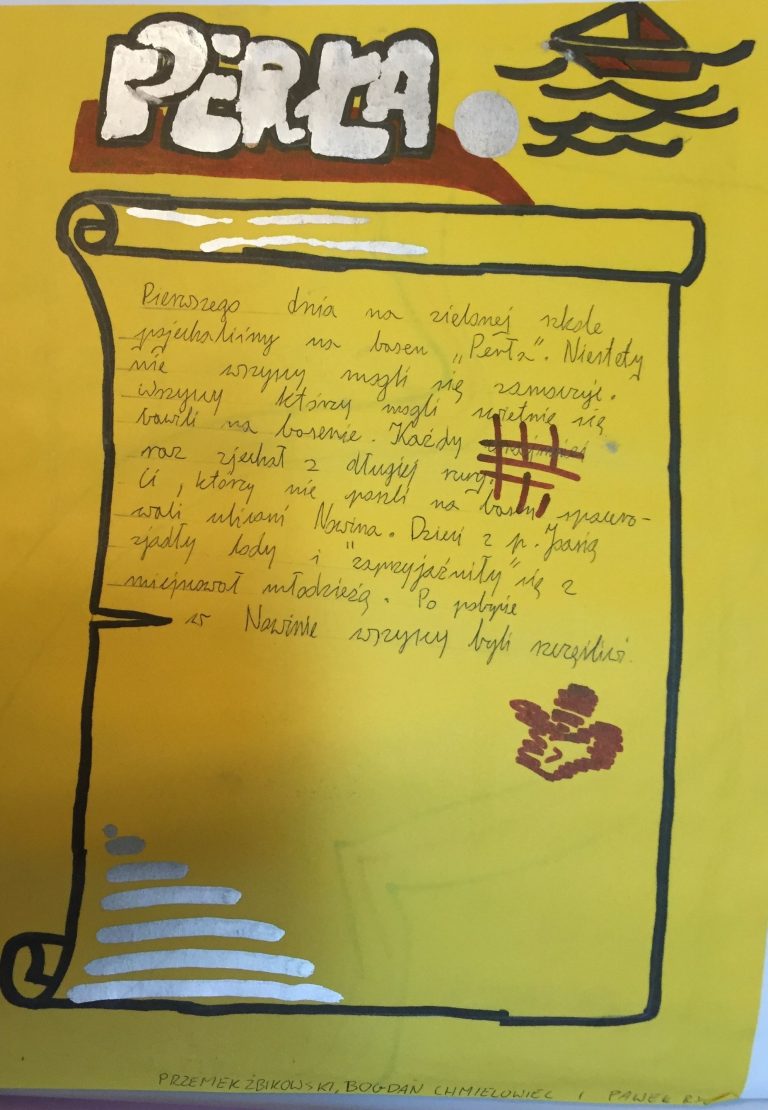 PERŁA
Pierwszego dnia na zielonej szkole
pojechaliśmy na basen „Perła". Niestety
nie wszyscy mogli się
wszyscy którzy mogli świetnie się
bawili na basenie. Każdy
raz zjechał z długiej rury.
Ci, którzy nie poszli na basen spacero-
wali ulicami Nowina. Dzieci z p. Joasią
zjadły lody i "zaprzyjaźniły" się z
miejscowoł młodzieżą. Po pobycie
w Nowinie wszyscy byli szczęśliwi.
PRZEMEK ŻBIKOWSKI, BOGDAN CHMIELOWIEC I PAWEŁ